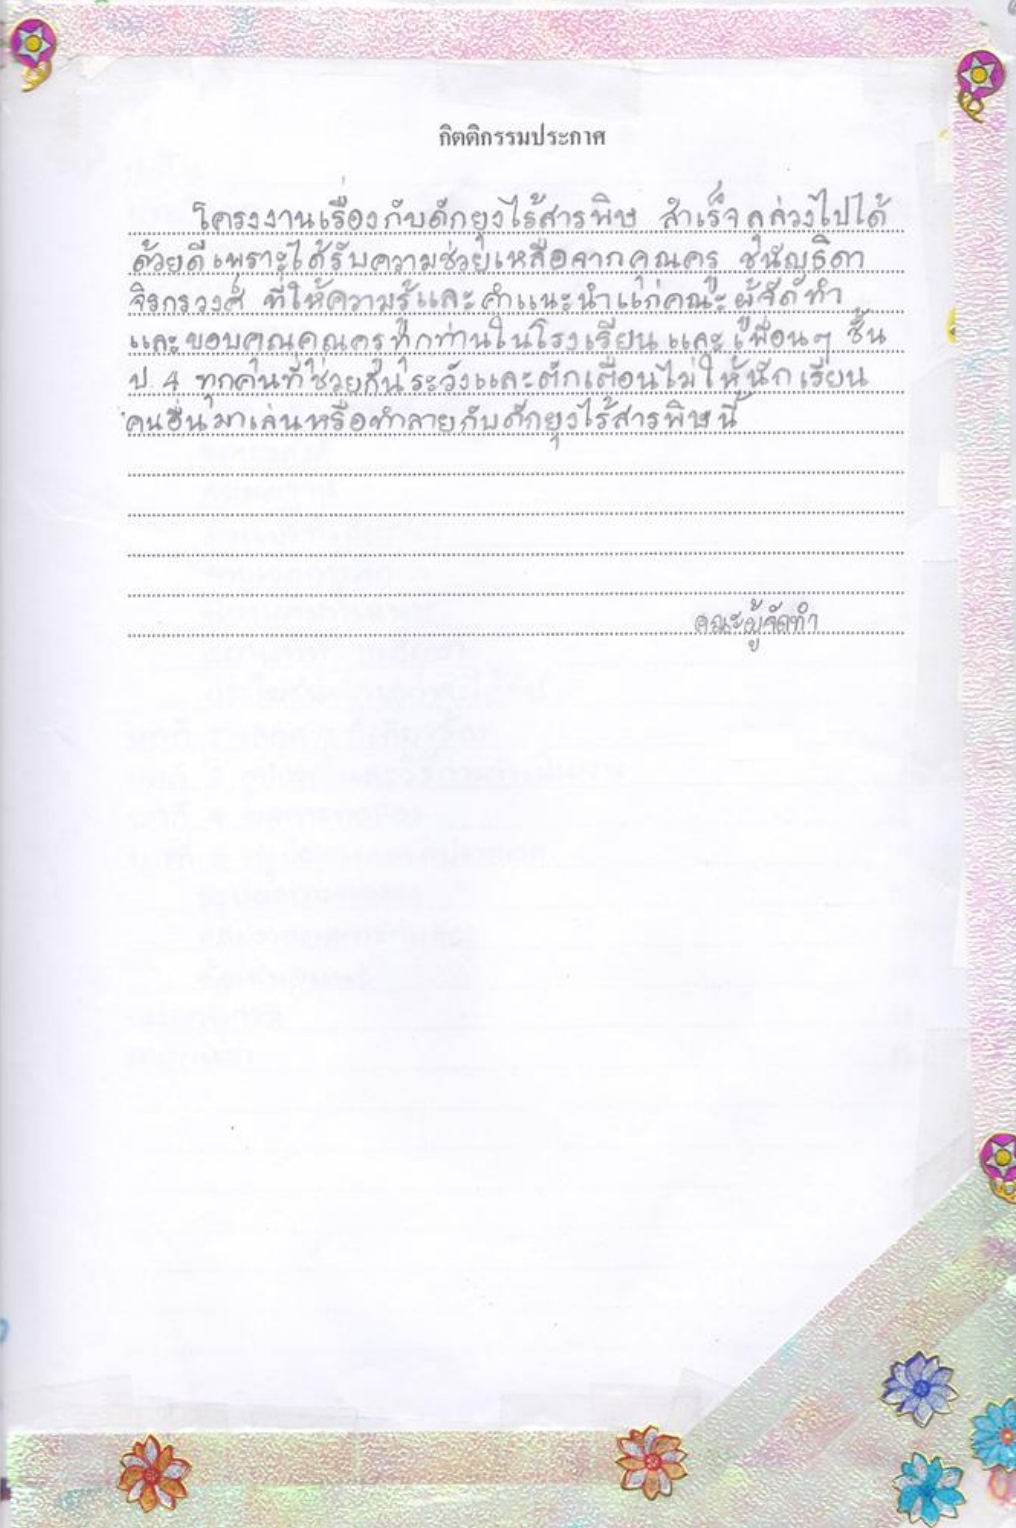 กิตติกรรมประกาศ
โครงงานเรื่องกับดักยุงไร้สารพิษ สำเร็จลุล่วงไปได้
ด้วยดีเพราะได้รับความช่วยเหลือจากคุณครู ชนัญธิดา
จิรกรวงศ์ ที่ให้ความรู้และคำแนะนำแก่คณะผู้จัดทำ
และขอบคุณคุณครูทุกท่านในโรงเรียนและเพื่อนๆ ชั้น
ป.4 ทุกคนที่ช่วยกันระวังและตักเตือนไม่ให้นักเรียน
คนอื่นมาเล่นหรือทำลายกับดักยุงไร้สารพิษนี้
คณะผู้จัดทำ